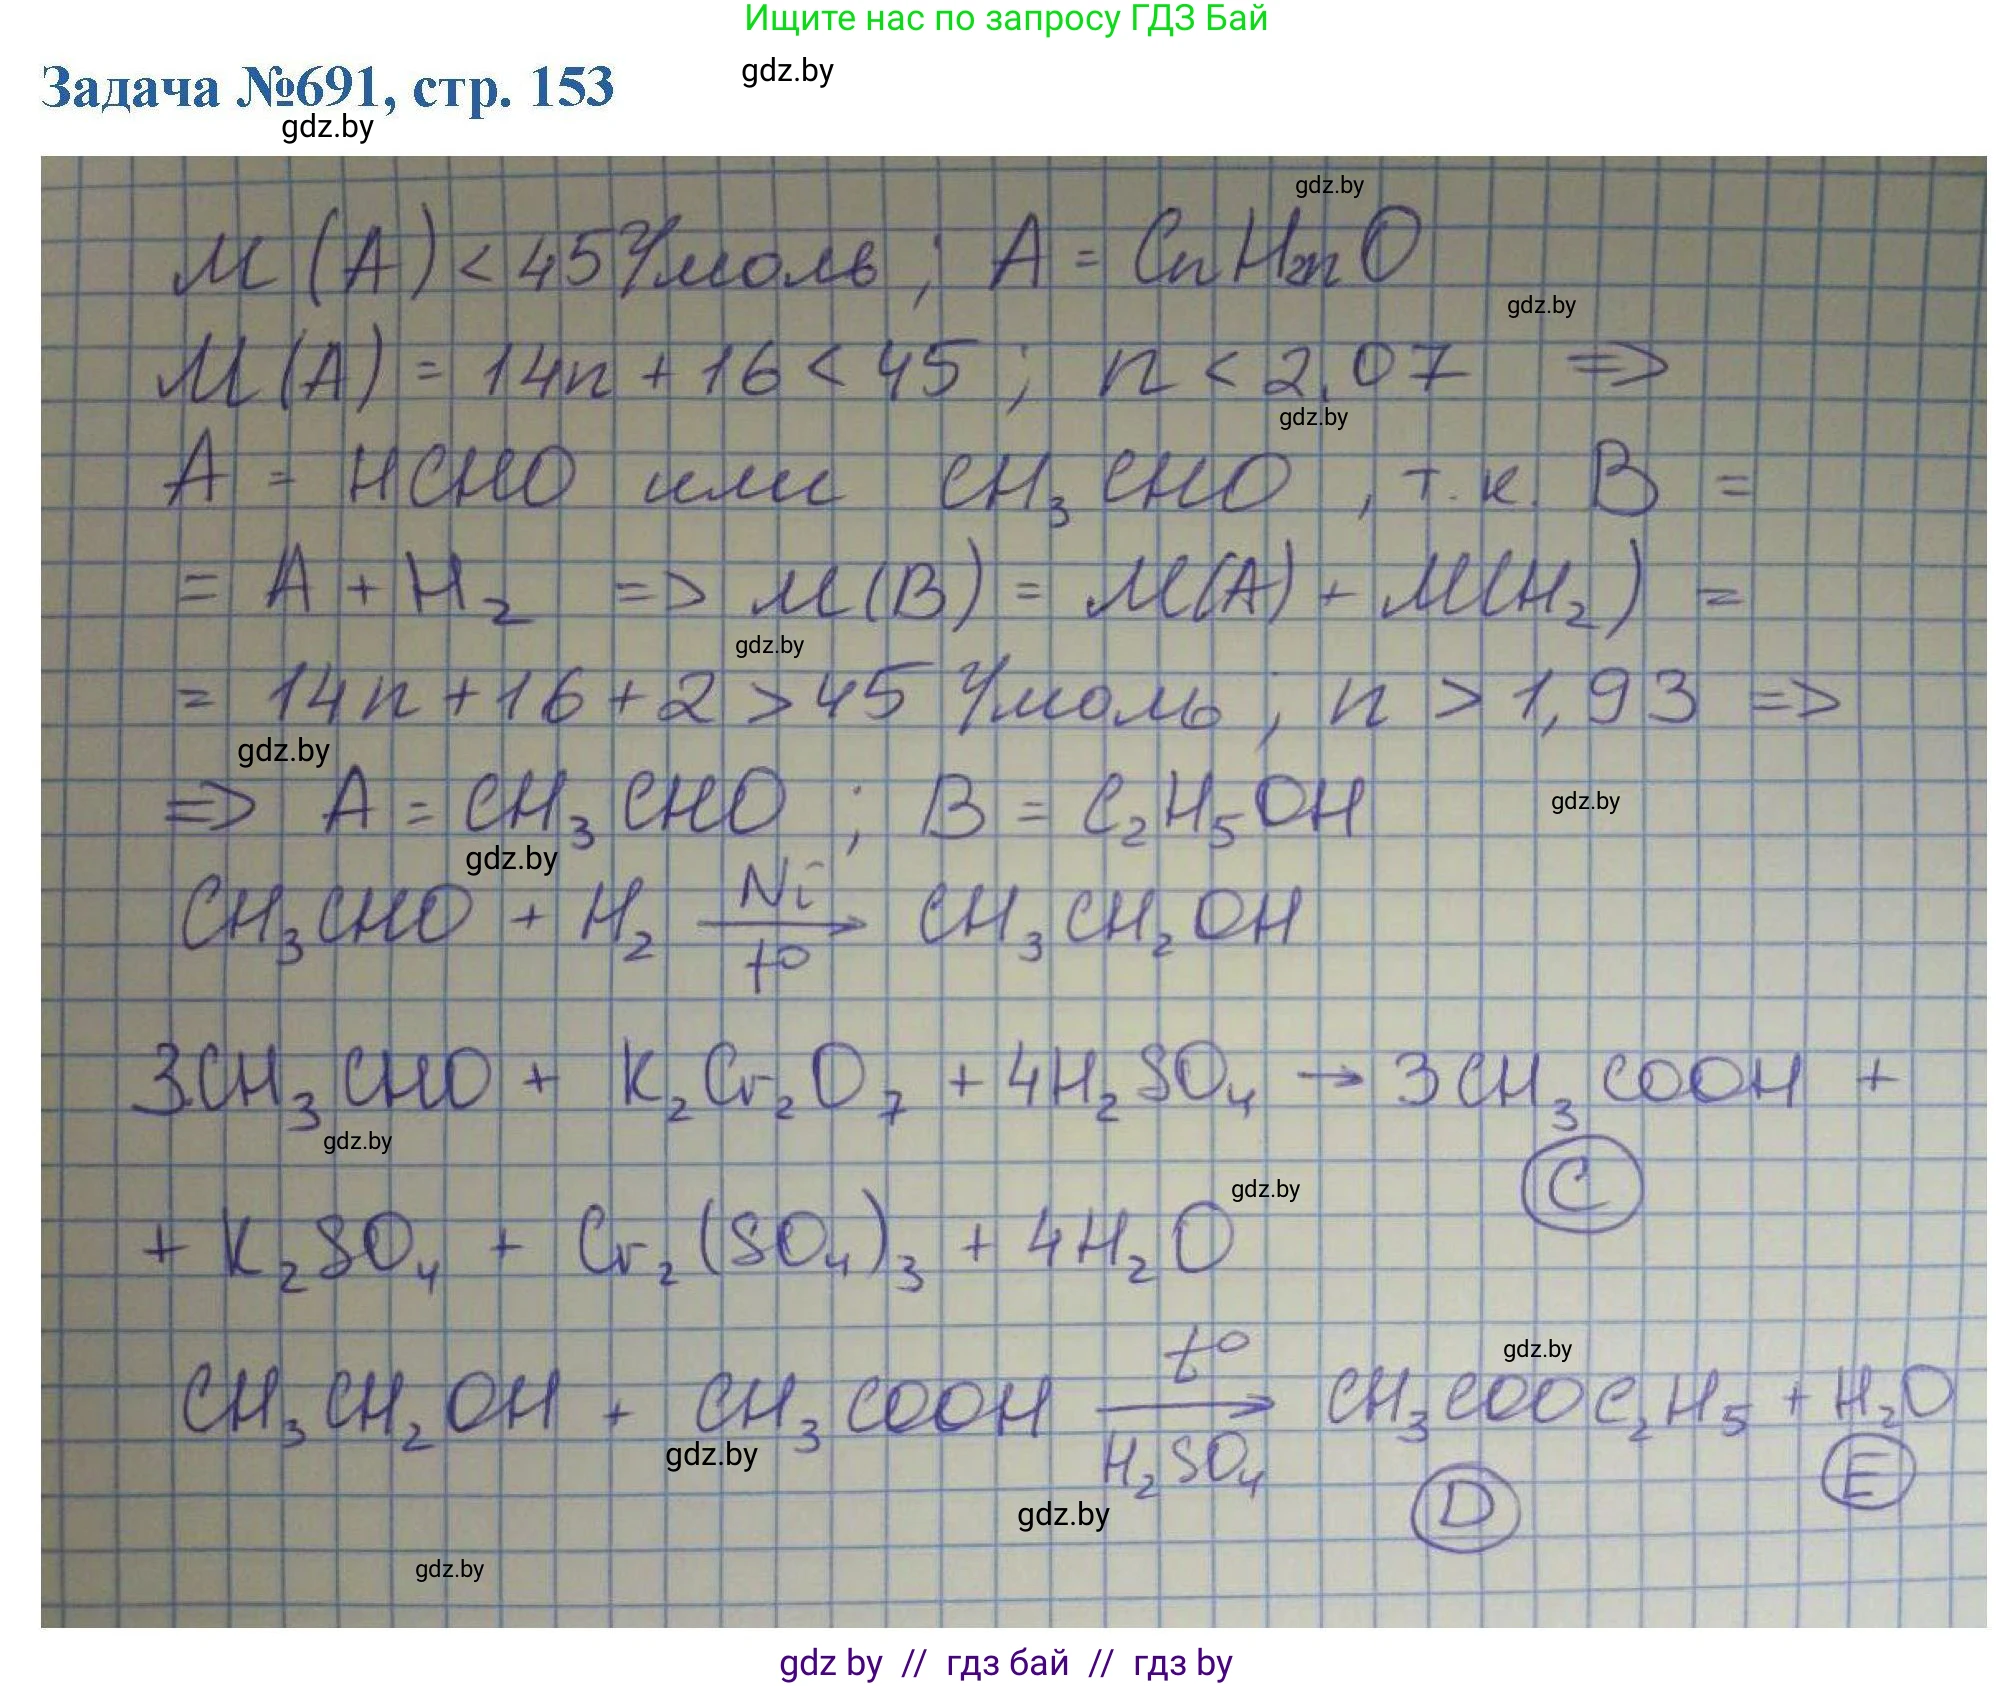 Ищите нас по запросу ГДЗ Бай
Задача №691, стр. 153
gdz.by
gdz.by
gdz.by
M(A) < 45 г/моль ; A = CnH2nO
gdz.by
M(A) = 14n + 16 < 45 ; n < 2,07 =>
gdz.by
A = HCHO или CH₃CHO , т.к. B =
= A + H₂ => M(B) = M(A) + M(H₂) =
gdz.by
= 14n + 16 + 2 > 45 г/моль ; n > 1,93 =>
gdz.by
=> A = CH₃CHO ; B = C₂H₅OH
gdz.by
gdz.by
Ni
CH₃CHO + H₂ → CH₃CH₂OH
t°
3CH₃CHO + K₂Cr₂O₇ + 4H₂SO₄ → 3CH₃COOH +
gdz.by
C
gdz.by
+ K₂SO₄ + Cr₂(SO₄)₃ + 4H₂O
t°
gdz.by
CH₃CH₂OH + CH₃COOH → CH₃COOC₂H₅ + H₂O
gdz.by
H₂SO₄
D
E
gdz.by
gdz.by
gdz by // гдз бай // гдз by